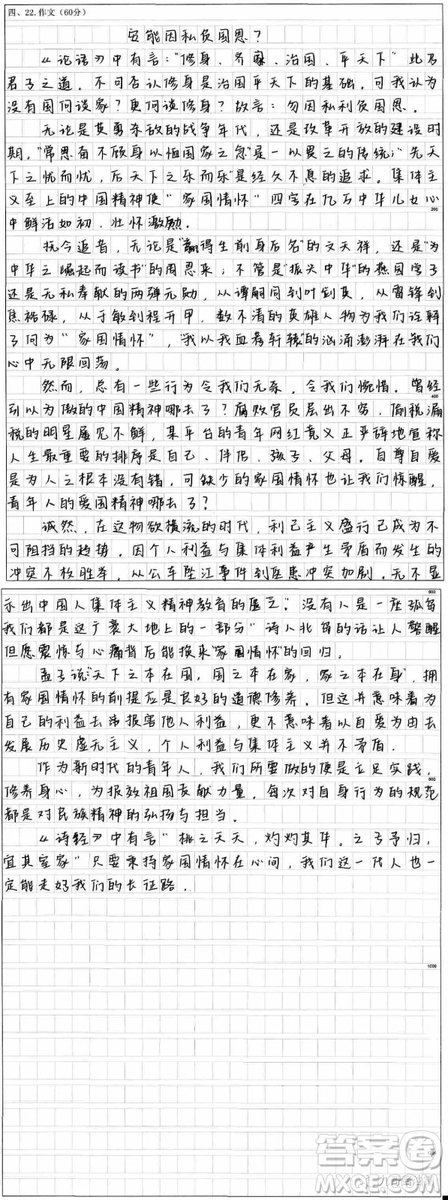 四、22.作文(60分)
安能因私负国恩？
《论语》中有言："修身、齐家、治国、平天下"此乃
君子之道，不可否认修身是治国平天下的基础，可我认为
没有国何谈家？更何谈修身？故言：勿因私利负国恩。
无论是英勇奋敌的战争年代，还是改革开放的建设时
期，"常思奋不顾身以恤国家之急"是一以贯之的传统；"先天
下之忧而忧，后天下之乐而乐"是经久不息的追求。集体主
义至上的中国精神使"家国情怀"四字在亿万中华儿女心
中鲜活如初，壮怀激励。
抚今追昔，无论是"赢得生前身后名"的文天祥，还是"为
中华之崛起而读书"的周恩来；不管是"振兴中华"的燕园学子
还是无私奉献的两弹元勋，从谭嗣同到叶剑英，从雷锋到
焦裕禄，从于敏到程开甲，数不清的英雄人物为我们诠释
了何为"家国情怀"，"我以我血荐轩辕"的汹涌澎湃在我们
心中无限回荡。
然而，总有一些行为令我们无奈，令我们惋惜。曾经
引以为傲的中国精神哪去了？腐败官员层出不穷，偷税漏
税的明星屡见不鲜，某平台的青年网红竟义正严辞地宣称
人生最重要的排序是自己、伴侣、孩子、父母，自尊自爱
是为人之根本没有错，可缺少的家国情怀也让我们惊醒，
青年人的爱国精神哪去了？
诚然，在这物欲横流的时代，利己主义盛行已成为不
可阻挡的趋势，因个人利益与集体利益产生矛盾而发生的
冲突不枚胜举，从公车坠江事件到医患冲突加剧，无不显
示出中国人集体主义精神教育的匮乏。"没有人是一座孤岛
我们都是这广袤大地上的一部分"诗人北岛的话让人警醒
但愿震惊与心痛背后能换来"家国情怀"的回归。
孟子说"天下之本在国，国之本在家，家之本在身"，拥
有家国情怀的前提应是良好的道德修养。但这并意味着为
自己的利益去沛报害他人利益，更不意味着以自爱为由去
发展历史虚无主义，个人利益与集体主义并不矛盾。
作为新时代的青年人，我们所要做的便是立足实践，
修养身心，为报效祖国贡献力量，每次对自身行为的规范
都是对民族精神的弘扬与担当。
《诗经》中有言"桃之夭夭，灼灼其华。之子于归，
宜其室家"只要秉持家国情怀在心间，我们这一代人也一
定能走好我们的长征路。
答案卷
MXQE.COM